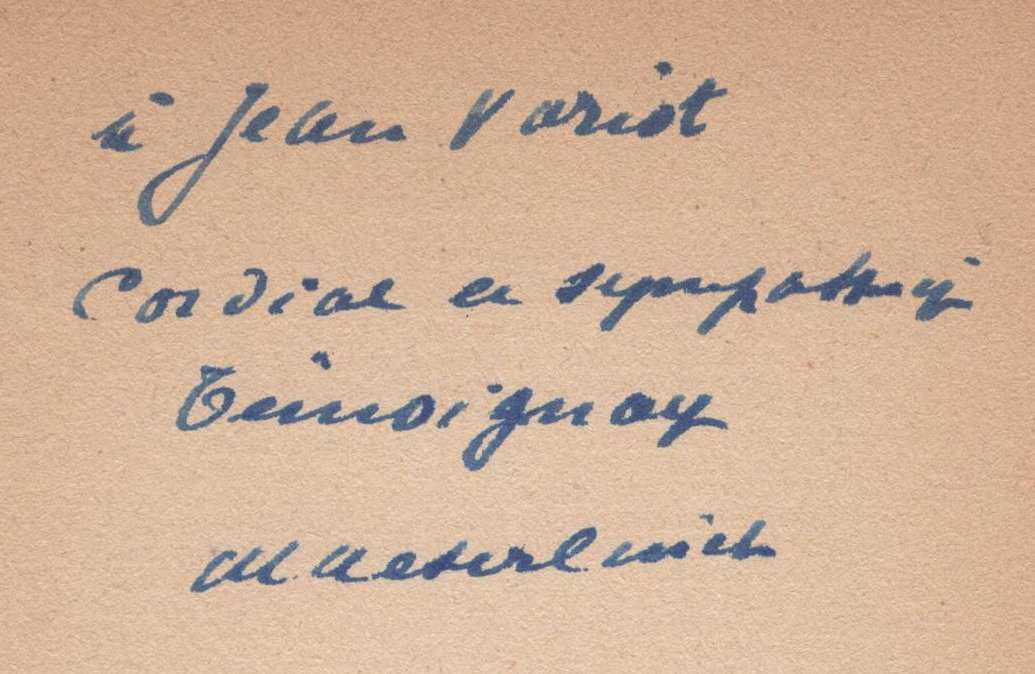 à Jean Variot
Cordial et sympathique
Témoignage
M Maeterlinck